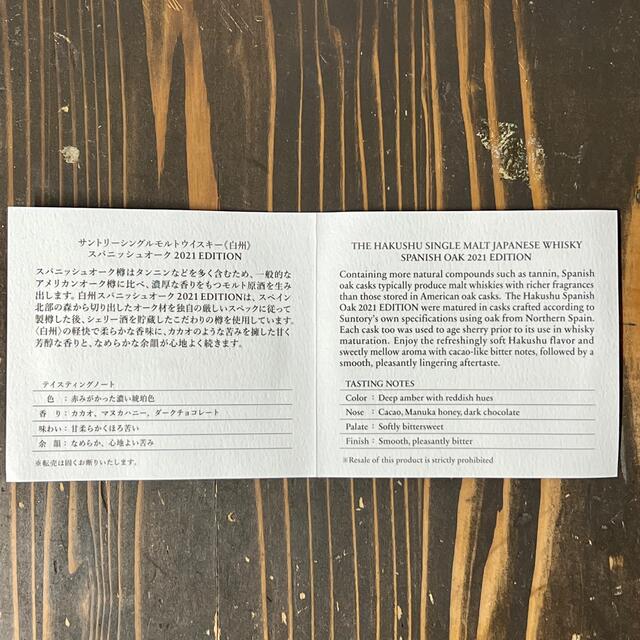 サントリーシングルモルトウイスキー〈白州〉
スパニッシュオーク 2021 EDITION
スパニッシュオーク樽はタンニンなどを多く含むため、一般的な
アメリカンオーク樽に比べ、濃厚な香りをもつモルト原酒を生み
出します。白州スパニッシュオーク 2021 EDITIONは、スペイン
北部の森から切り出したオーク材を独自の厳しいスペックに従って
製樽した後、シェリー酒を貯蔵したこだわりの樽を使用しています。
〈白州〉の軽快で柔らかな香味に、カカオのような苦みを擁した甘く
芳醇な香りと、なめらかな余韻が心地よく続きます。
テイスティングノート
色：赤みがかった濃い琥珀色
香り：カカオ、マヌカハニー、ダークチョコレート
味わい：甘柔らかくほろ苦い
余韻：なめらか、心地よい苦み
※転売は固くお断りいたします。
THE HAKUSHU SINGLE MALT JAPANESE WHISKY
SPANISH OAK 2021 EDITION
Containing more natural compounds such as tannin, Spanish
oak casks typically produce malt whiskies with richer fragrances
than those stored in American oak casks. The Hakushu Spanish
Oak 2021 EDITION were matured in casks crafted according to
Suntory's own specifications using oak from Northern Spain.
Each cask too was used to age sherry prior to its use in whisky
maturation. Enjoy the refreshingly soft Hakushu flavor and
sweetly mellow aroma with cacao-like bitter notes, followed by a
smooth, pleasantly lingering aftertaste.
TASTING NOTES
Color : Deep amber with reddish hues
Nose : Cacao, Manuka honey, dark chocolate
Palate : Softly bittersweet
Finish : Smooth, pleasantly bitter
※Resale of this product is strictly prohibited